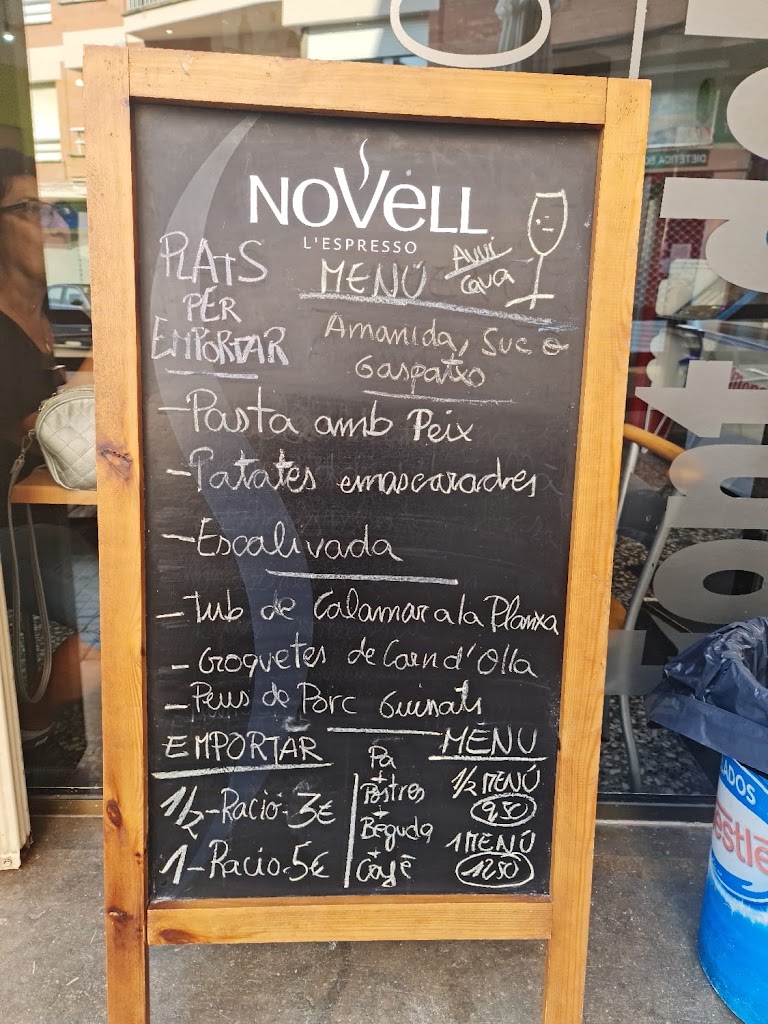 NoVELL
L'ESPRESSO
PLATS
PER
EMPORTAR
MENÚ
Avui
Cava
Amanida, Suc o
Gaspatxo
-Pasta amb Peix
-Patates emascarades
-Escalivada
-Tub de Calamar a la Planxa
-Croquetes de Carn d'Olla
-Peus de Porc Guisats
EMPORTAR
1/2-Ració-3€
1-Racio-5€
Pa
+
Postres
+
Beguda
+
Café
MENÚ
1/2 MENÚ
9,50
1 MENÚ
12,50
DIETETICA
LADOS
Nestlé